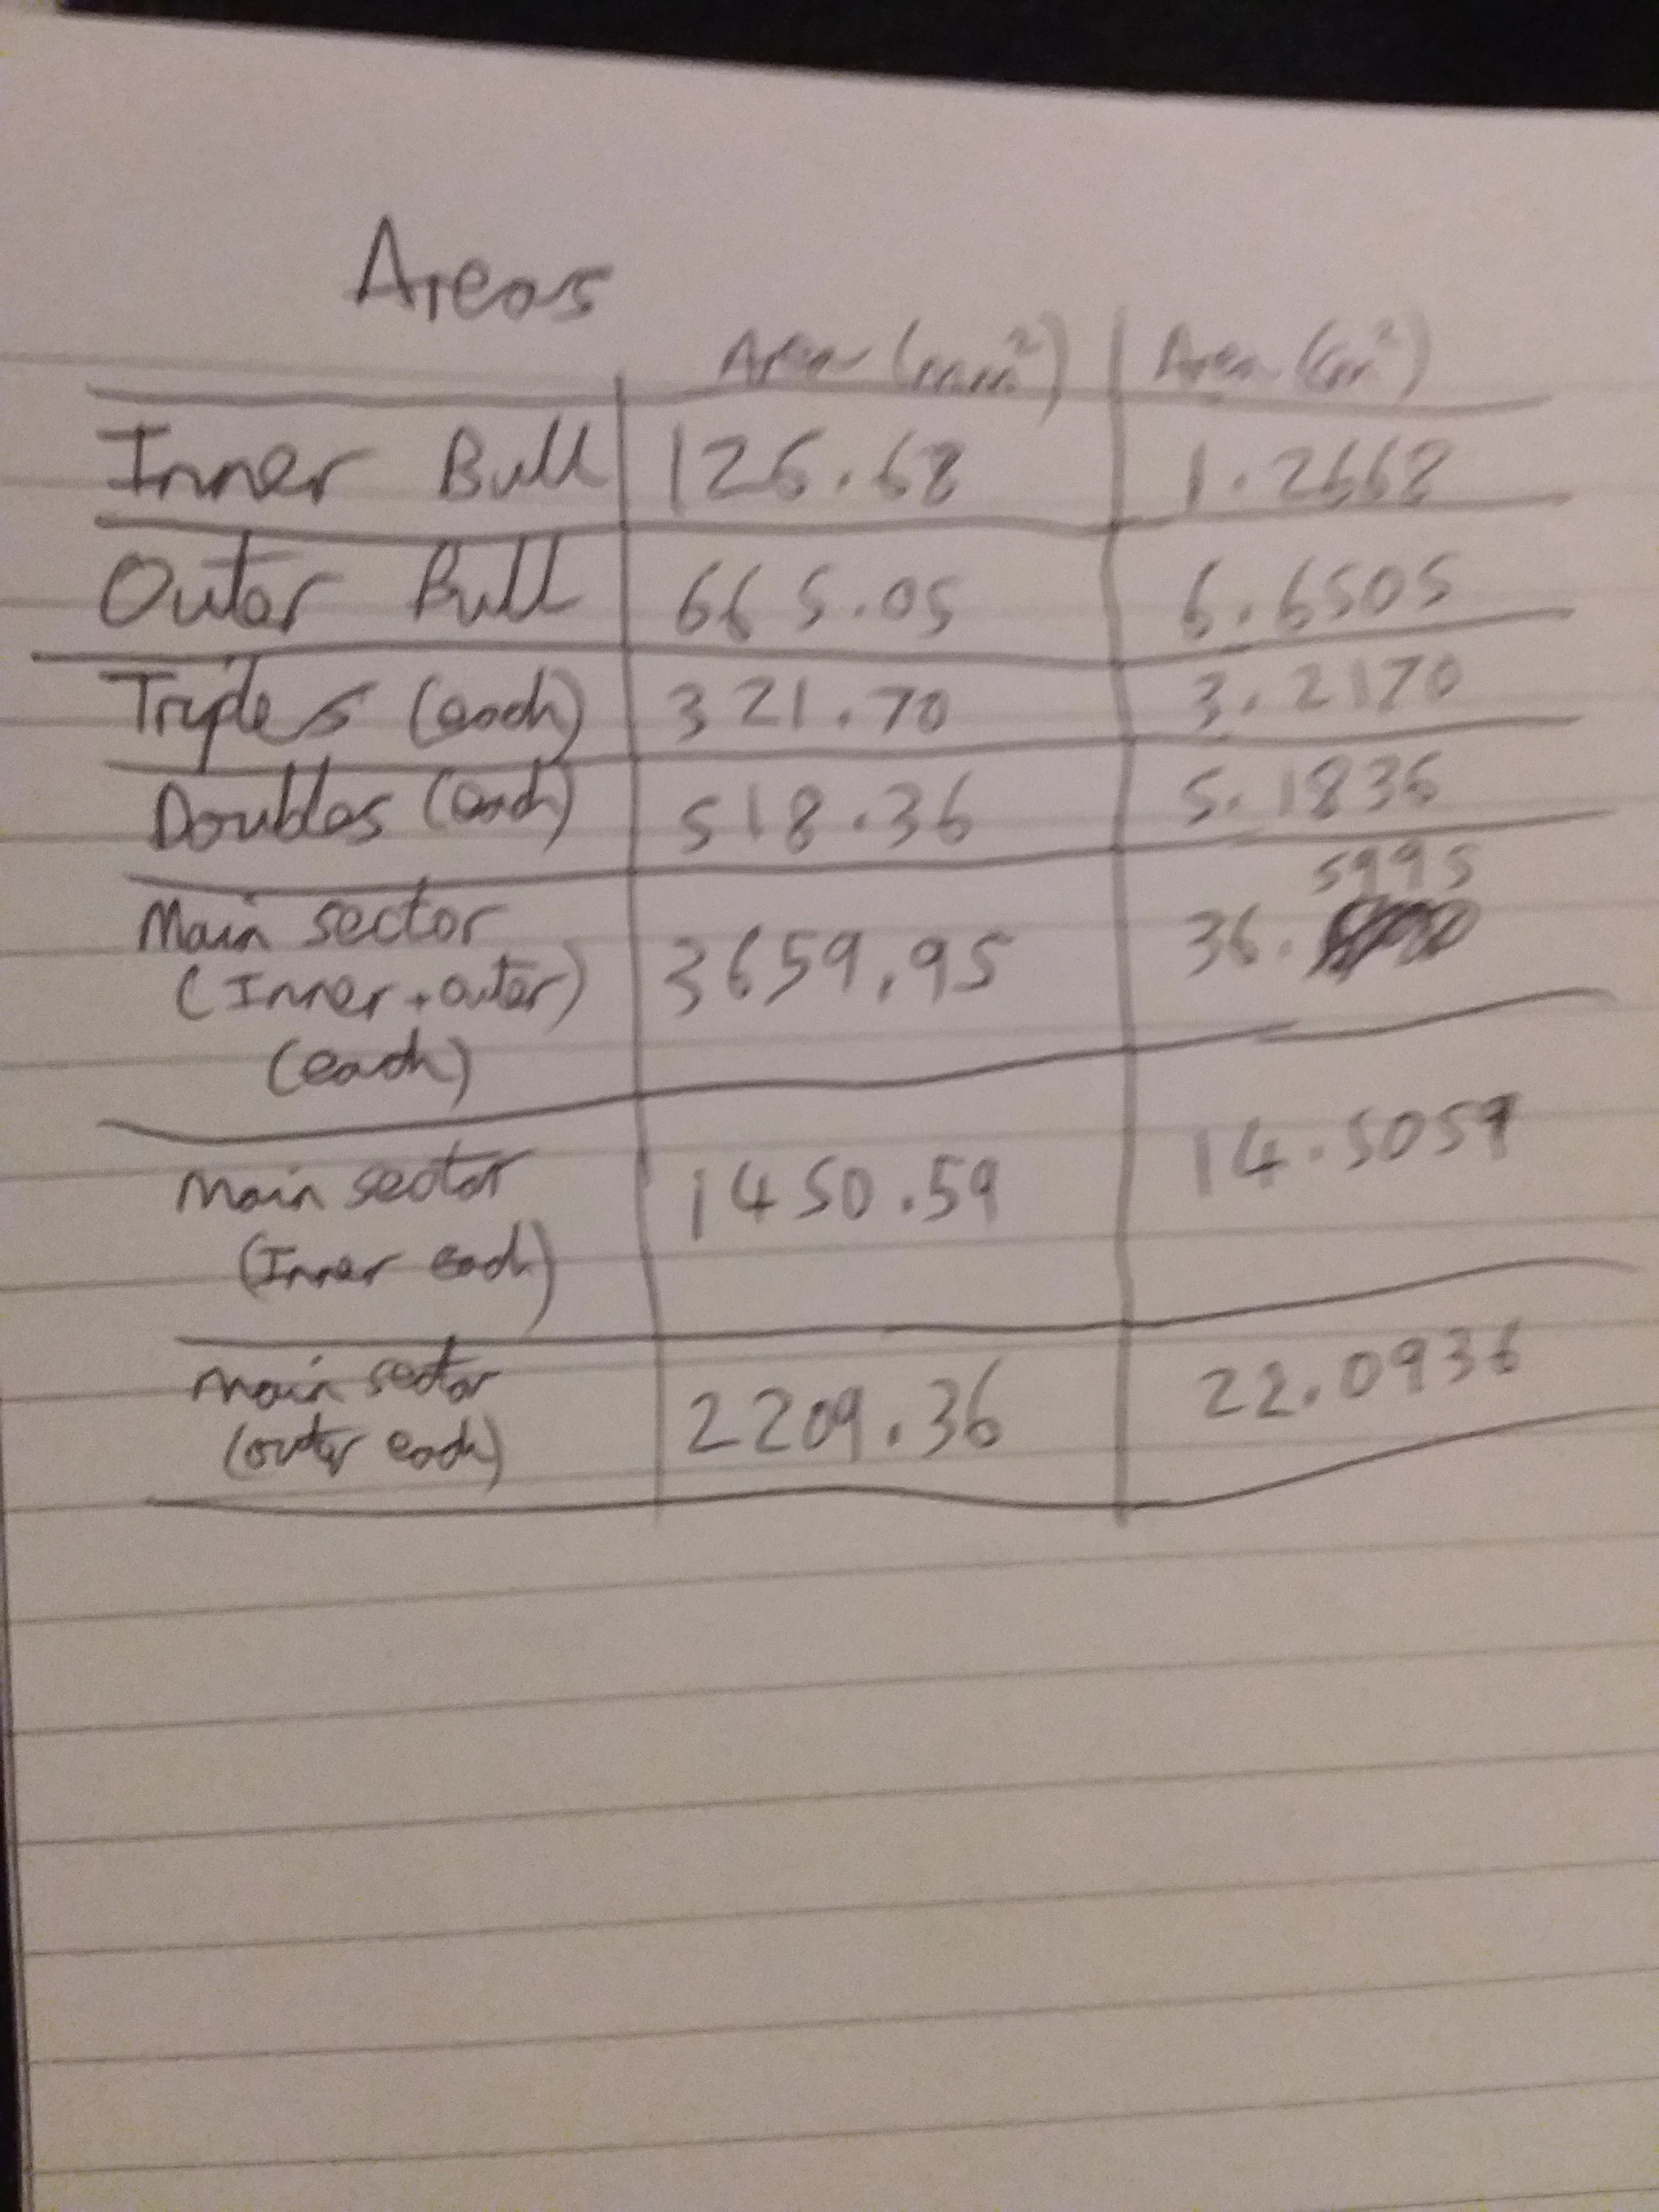 Areas
Area (mm²) Area (cm²)
Inner Bull 126.68 1.2668
Outer Bull 665.05 6.6505
Triples (each) 321.70 3.2170
Doubles (each) 518.36 5.1836
Main sector (Inner + outer) (each) 3659.95 36.5995
Main sector (Inner each) 1450.59 14.5059
Main sector (outer each) 2209.36 22.0936